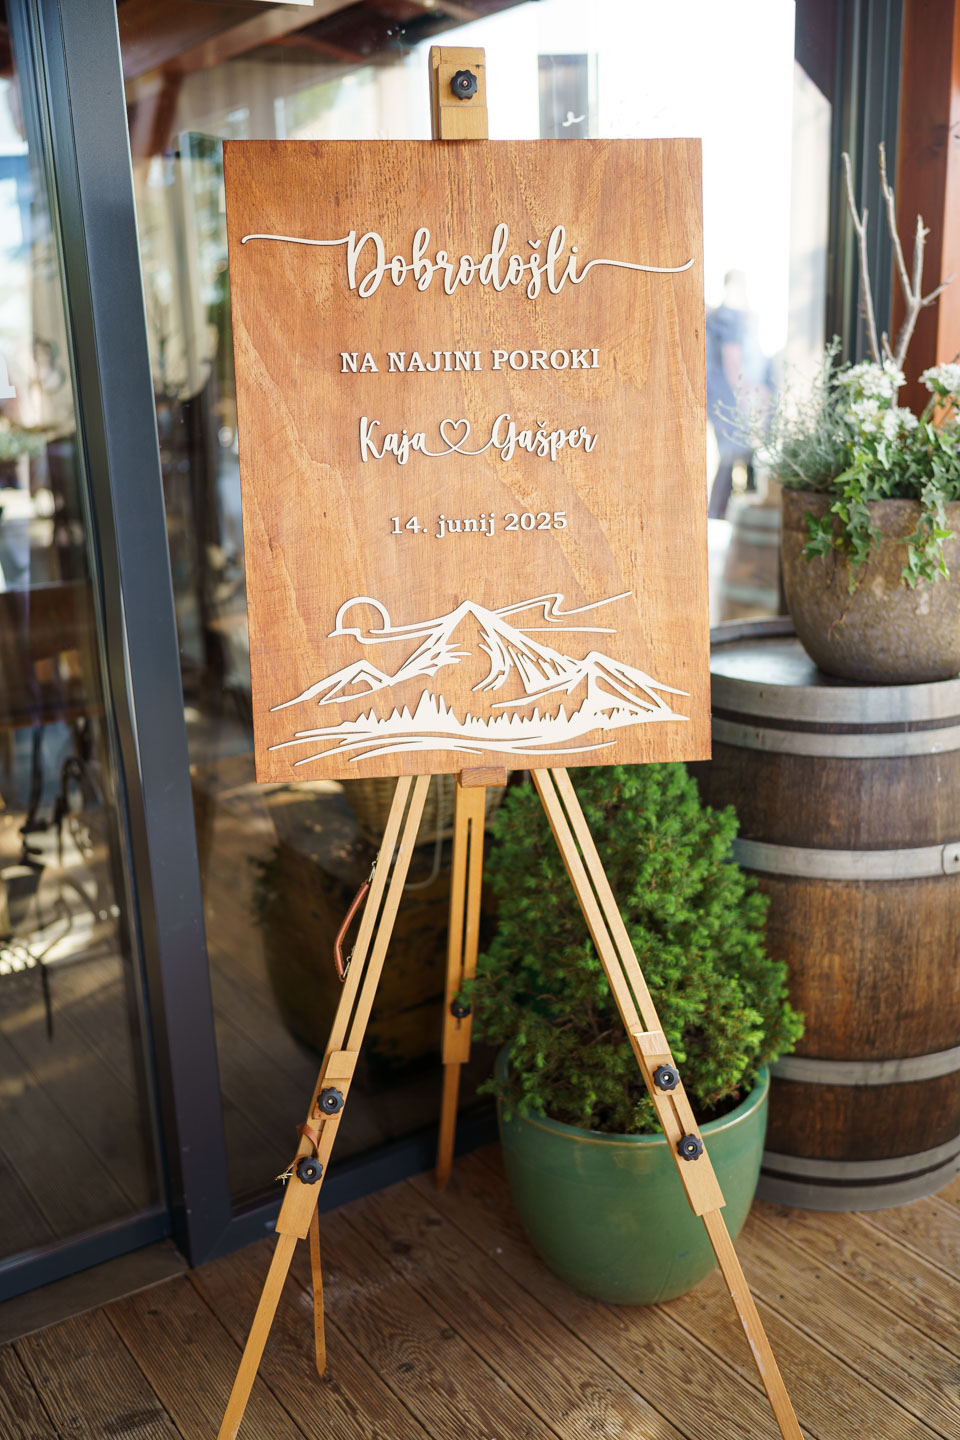 Dobrodošli
NA NAJINI POROKI
Kaja Gašper
14. junij 2025